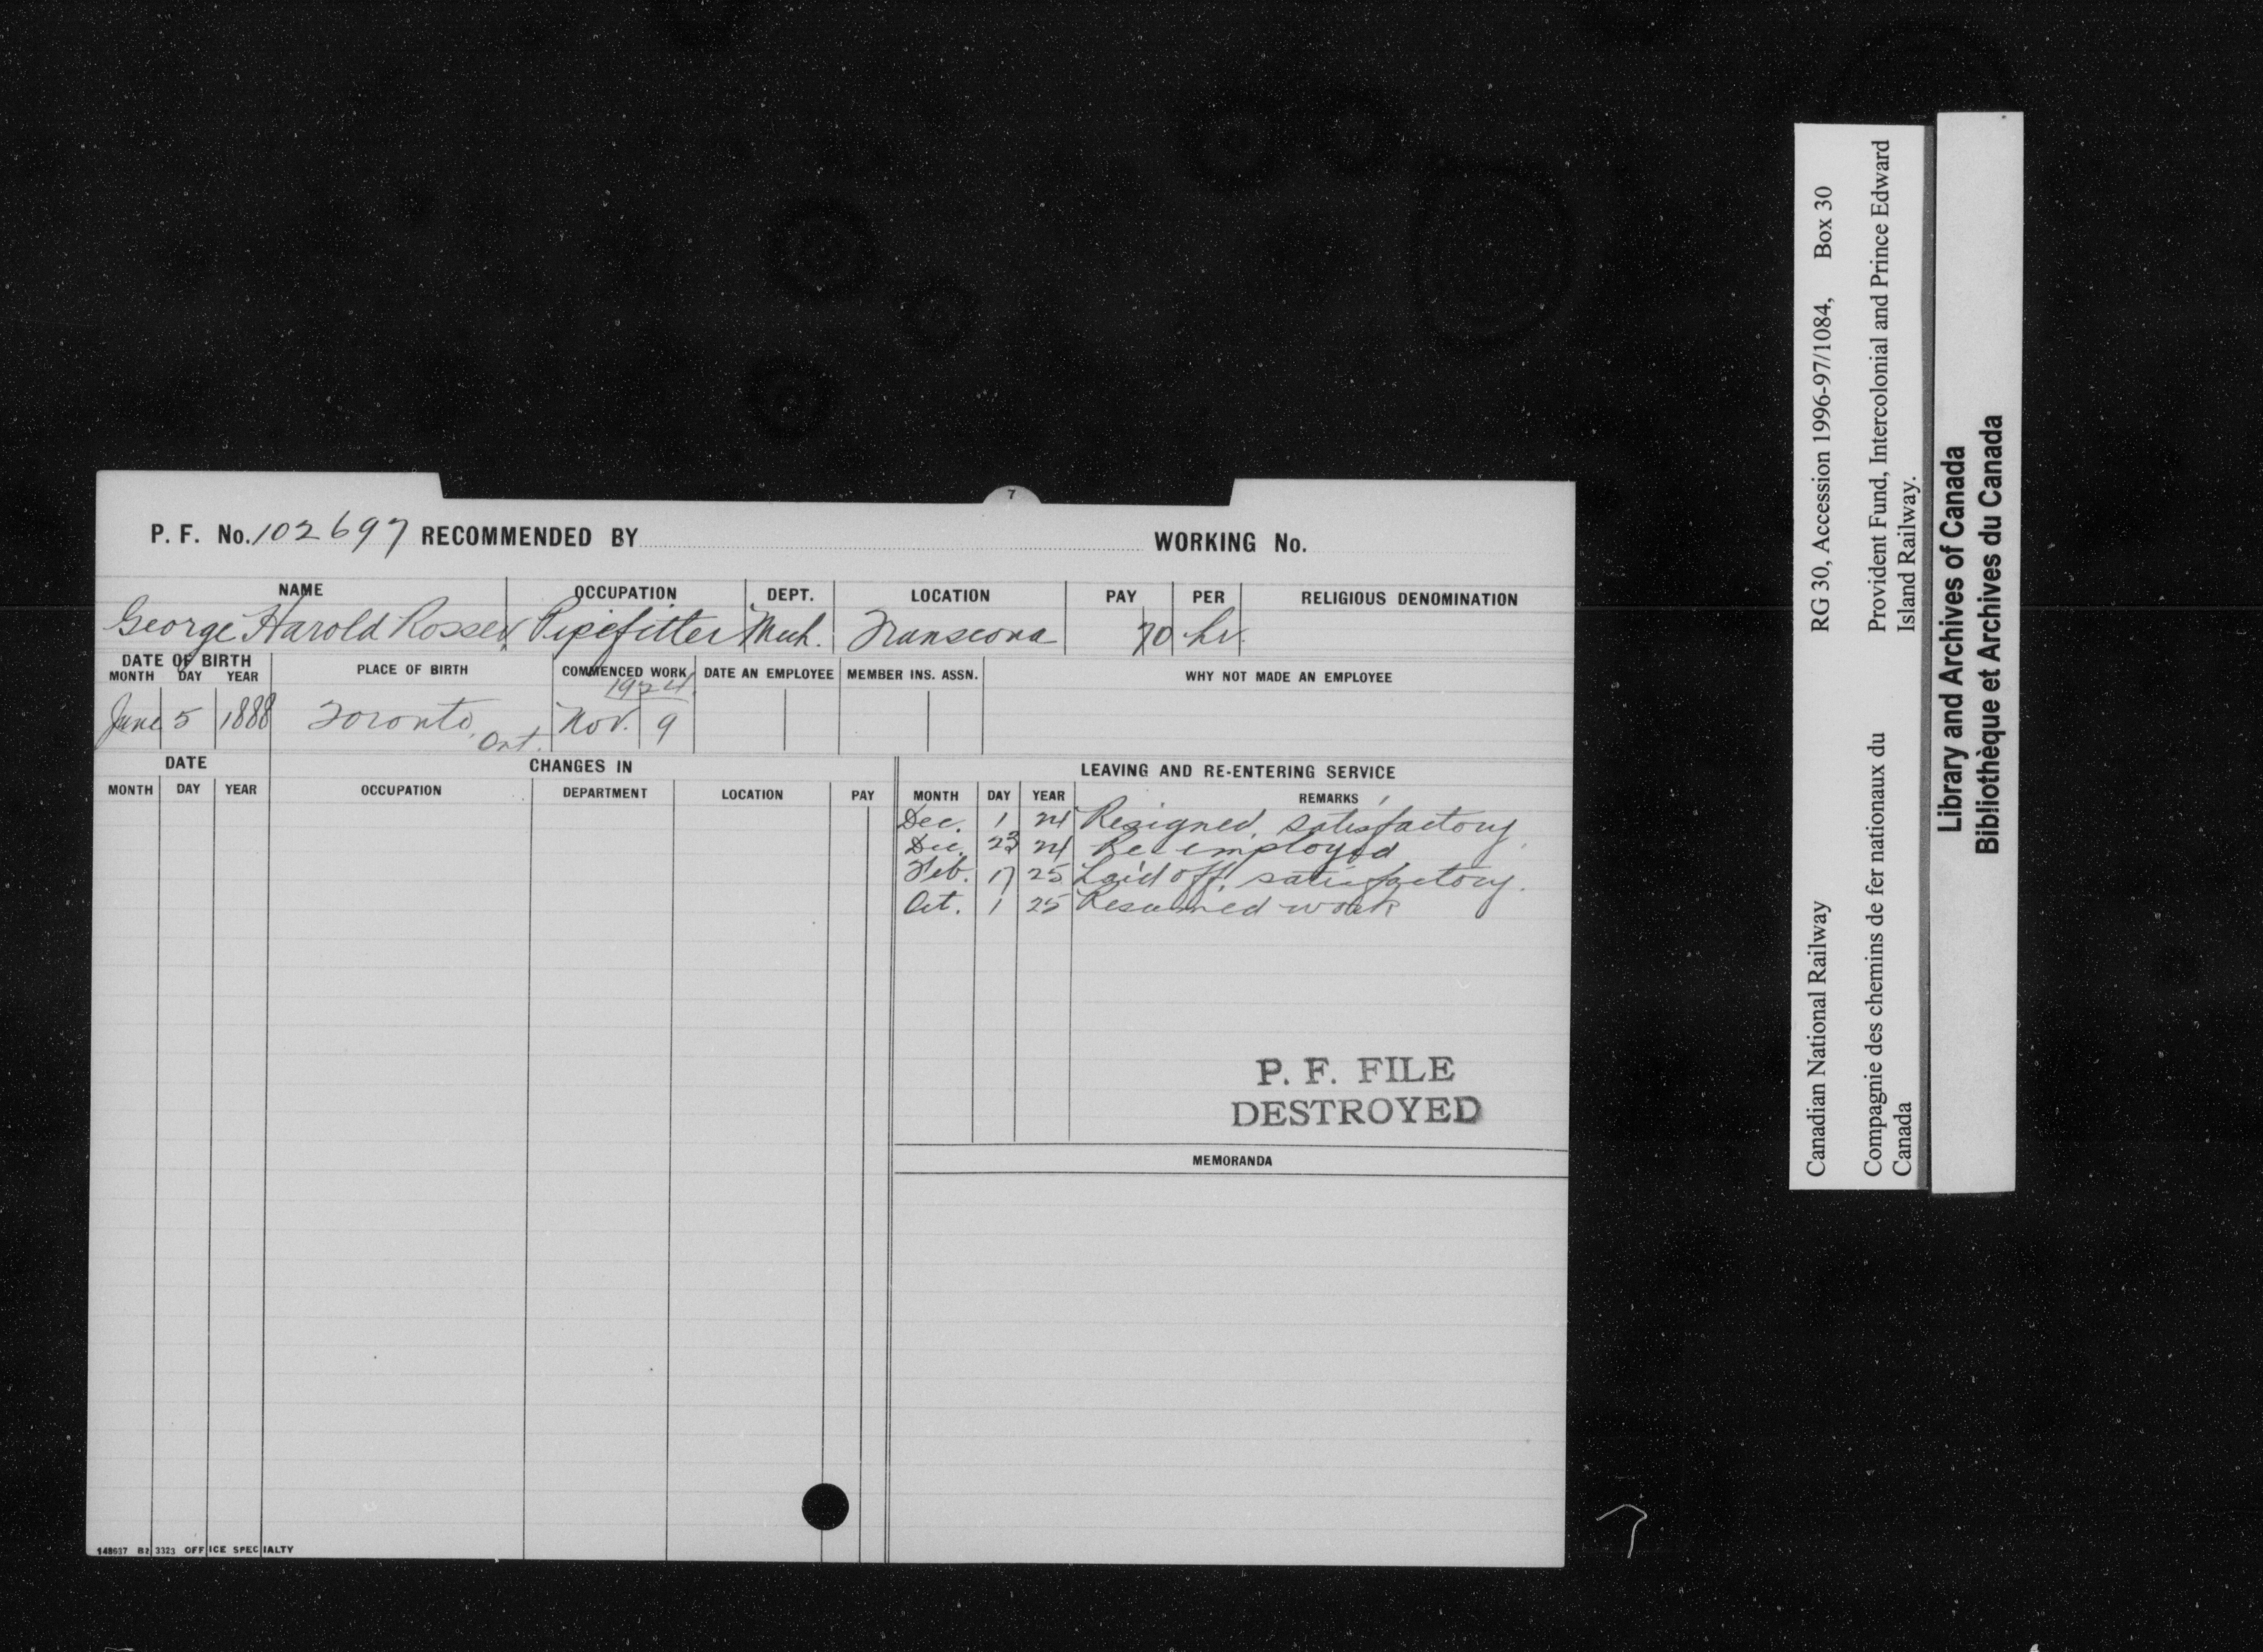 7
P. F. No. 102697 RECOMMENDED BY WORKING No.
NAME OCCUPATION DEPT. LOCATION PAY PER RELIGIOUS DENOMINATION
George Harold Rosser, Pipefitter Mech. Transcona 70 hr.
DATE OF BIRTH PLACE OF BIRTH COMMENCED WORK DATE AN EMPLOYEE MEMBER INS. ASSN. WHY NOT MADE AN EMPLOYEE
MONTH DAY YEAR
1924
June 5 1888 Toronto, Ont. Nov. 9
DATE CHANGES IN LEAVING AND RE-ENTERING SERVICE
MONTH DAY YEAR OCCUPATION DEPARTMENT LOCATION PAY MONTH DAY YEAR REMARKS
Dec. 1 24 Resigned, satisfactory.
Dec. 23 24 Re-employed
Feb. 17 25 Laid off, satisfactory.
Oct. 1 25 Resumed work
P. F. FILE
DESTROYED
MEMORANDA
148637 B2 3323 OFFICE SPECIALTY
7
Canadian National Railway RG 30, Accession 1996-97/1084, Box 30
Compagnie des chemins de fer nationaux du Provident Fund, Intercolonial and Prince Edward
Canada Island Railway.
Library and Archives of Canada
Bibliothèque et Archives du Canada